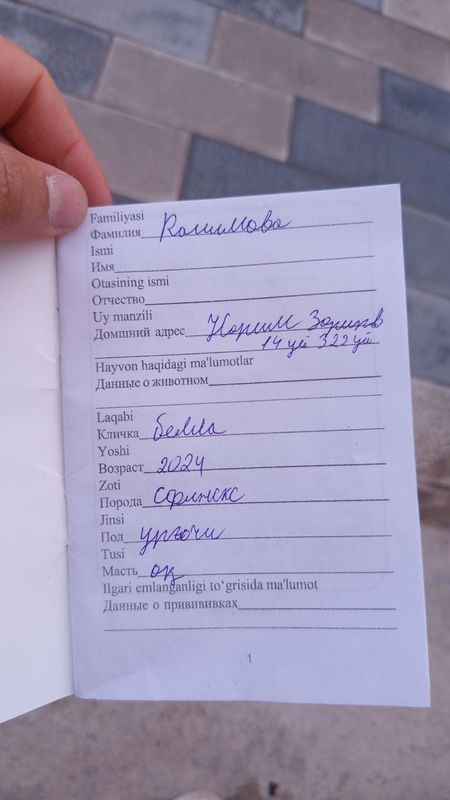 Familiyasi
Фамилия Рашимова
Ismi
Имя
Otasining ismi
Отчество
Uy manzili
Домшний адрес Карим Зарипов
14 уй 322 уй
Hayvon haqidagi ma'lumotlar
Данные о животном
Laqabi
Кличка белла
Yoshi
Возраст 2024
Zoti
Порода Сфинкс
Jinsi
Пол ургочи
Tusi
Масть оқ
Ilgari emlanganligi to‘grisida ma'lumot
Данные о привививках
1